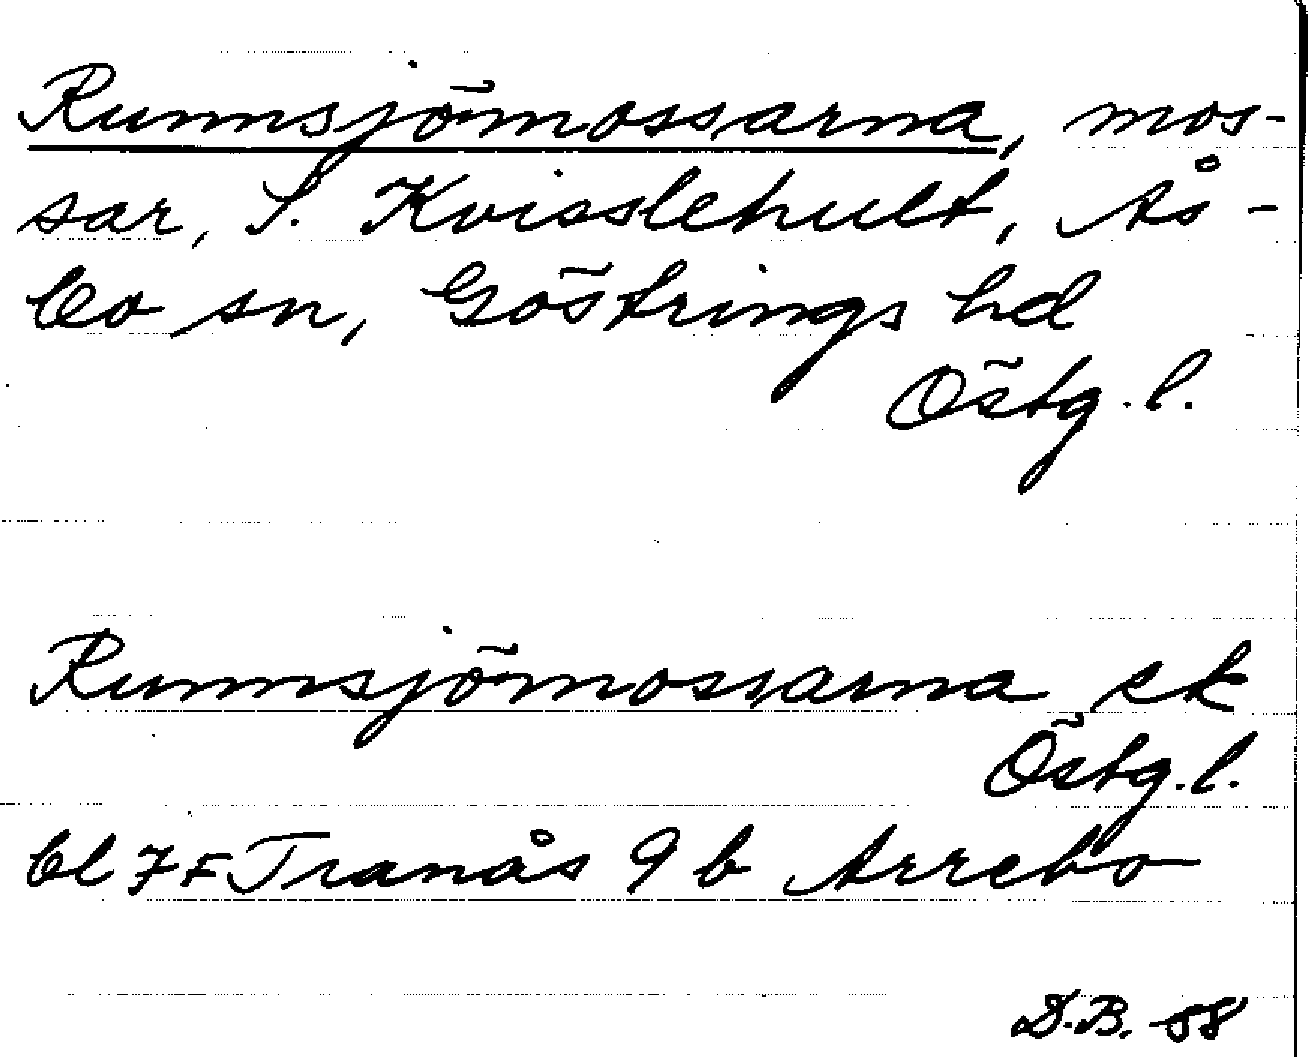 Runnsjömossarna, mos-
sar, S. Kvisslehult, Ås-
bo sn, Göstrings hd
Östg.l.
Runnsjömossarna ek
Östg.l.
bl 7F Tranås 9 b Arrebo
D.B. -58